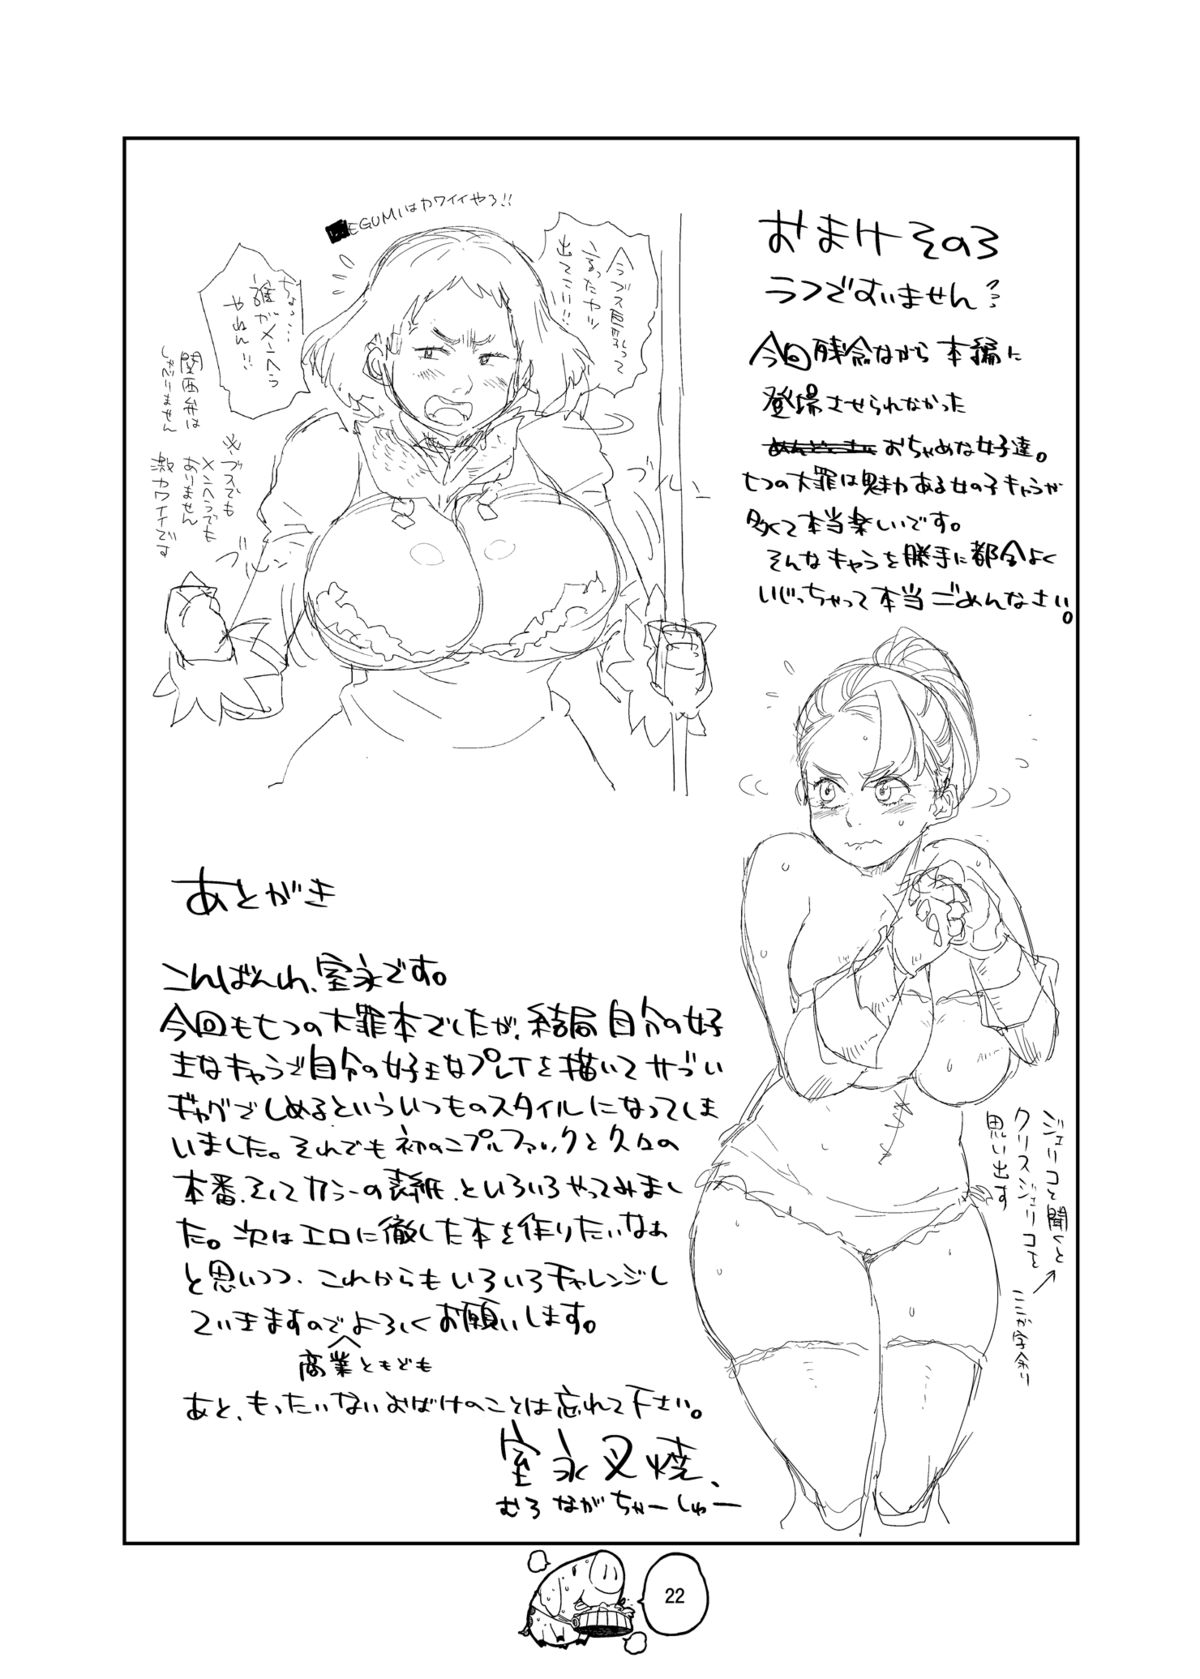 おまけその3
ラフですいません
今回残念ながら本編に
登場させられなかった
おちゃめな女子達。
七つの大罪は魅力ある女の子キャラが
多くて本当楽しいです。
そんなキャラを勝手に都合よく
いじっちゃって本当ごめんなさい。
EGUMIはカワイイやろ!!
今ブス専用って
言ったヤツ
出てこい!!
ちょっ…
誰がメンヘラ
やねん!!
関西弁は
しゃべりません
※ブスでも
メンヘラでも
ありません
激カワイイです
ブルン
ブルン
ジェリコと聞くと
クリスジェリコを
思い出す
ここが字余り
あとがき
こんばんわ、室永です。
今回も七つの大罪本でしたが、結局自分の好
きなキャラで自分の好きなプレイを描いてサブい
ギャグでしめるといういつものスタイルになってしま
いました。それでも初のニプルファックと久々の
本番、そしてカラーの表紙、といろいろやってみまし
た。次はエロに徹した本を作りたいなぁ
と思いつつ、これからもいろいろチャレンジし
ていきますのでよろしくお願いします。
商業ともども
あと、もったいないおばけのことは忘れて下さい。
室永叉焼、
むろながちゃーしゅー
22